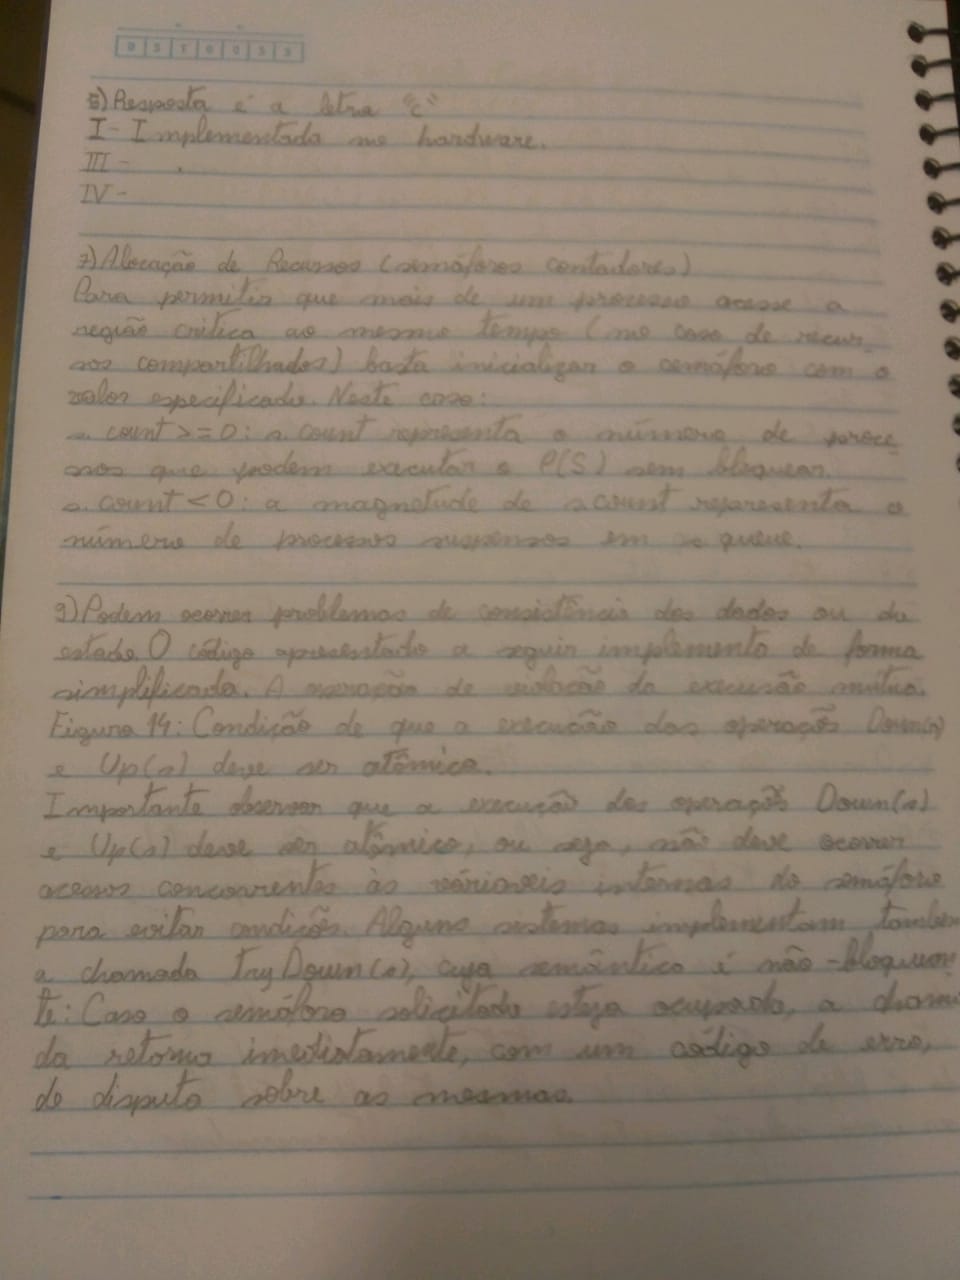 5) Resposta é a letra "c"
I - Implementada no hardware.
III - .
IV -
7) Alocação de Recursos (semáforos contadores)
Para permitir que mais de um processo acesse a
região crítica ao mesmo tempo (no caso de recur-
sos compartilhados) basta inicializar o semáforo com o
valor especificado. Neste caso:
s. count >= 0: s. count representa o número de proce
ssos que podem executar o P(S) sem bloquear.
s. count < 0: a magnetude de s count representa o
número de processos suspensos em queue.
9) Podem ocorrer problemas de consistência dos dados ou do
estado. O código apresentado a seguir implementa de forma
simplificada. A operação de violação da execusão mútua.
Figura 14: Condição de que a execução das operações Down(s)
e Up(s) deve ser atômica.
Importante observar que a execução das operações Down(s)
e Up(s) deve ser atômico, ou seja, não deve ocorrer
acessos concorrentes às várioveis internas do semáforo
para evitar condições. Alguns sistemas implementam também
a chamada TryDown(s), cuja semântica é não-bloquean
te: Caso o semáforo solicitado esteja ocupado, a chama
da retorna imediatamente, com um código de erro,
de disputa sobre as mesmas.